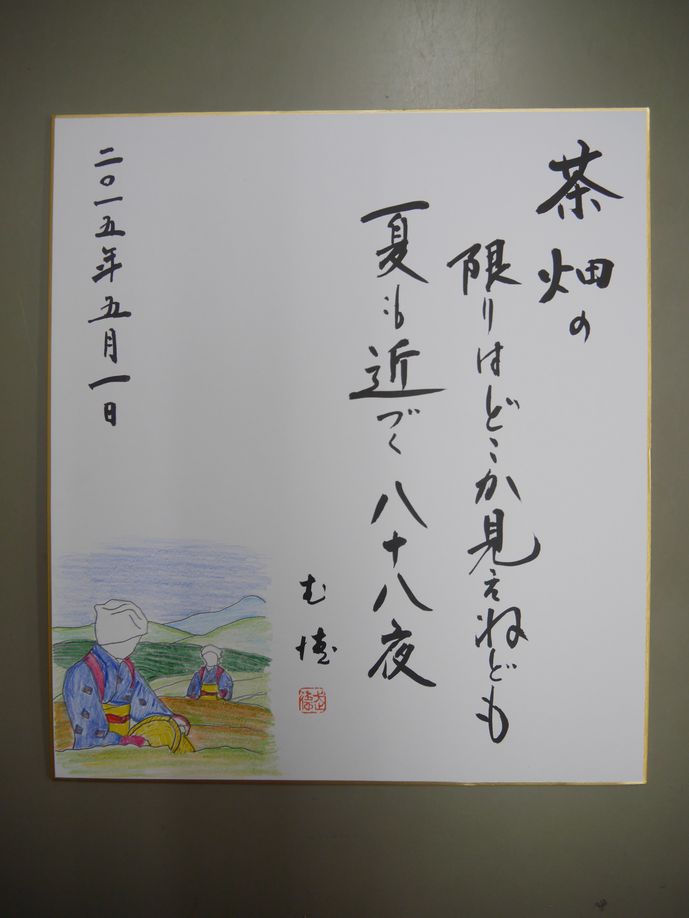 茶畑の
限りはどこか見えねども
夏も近づく八十八夜
二〇一五年五月一日